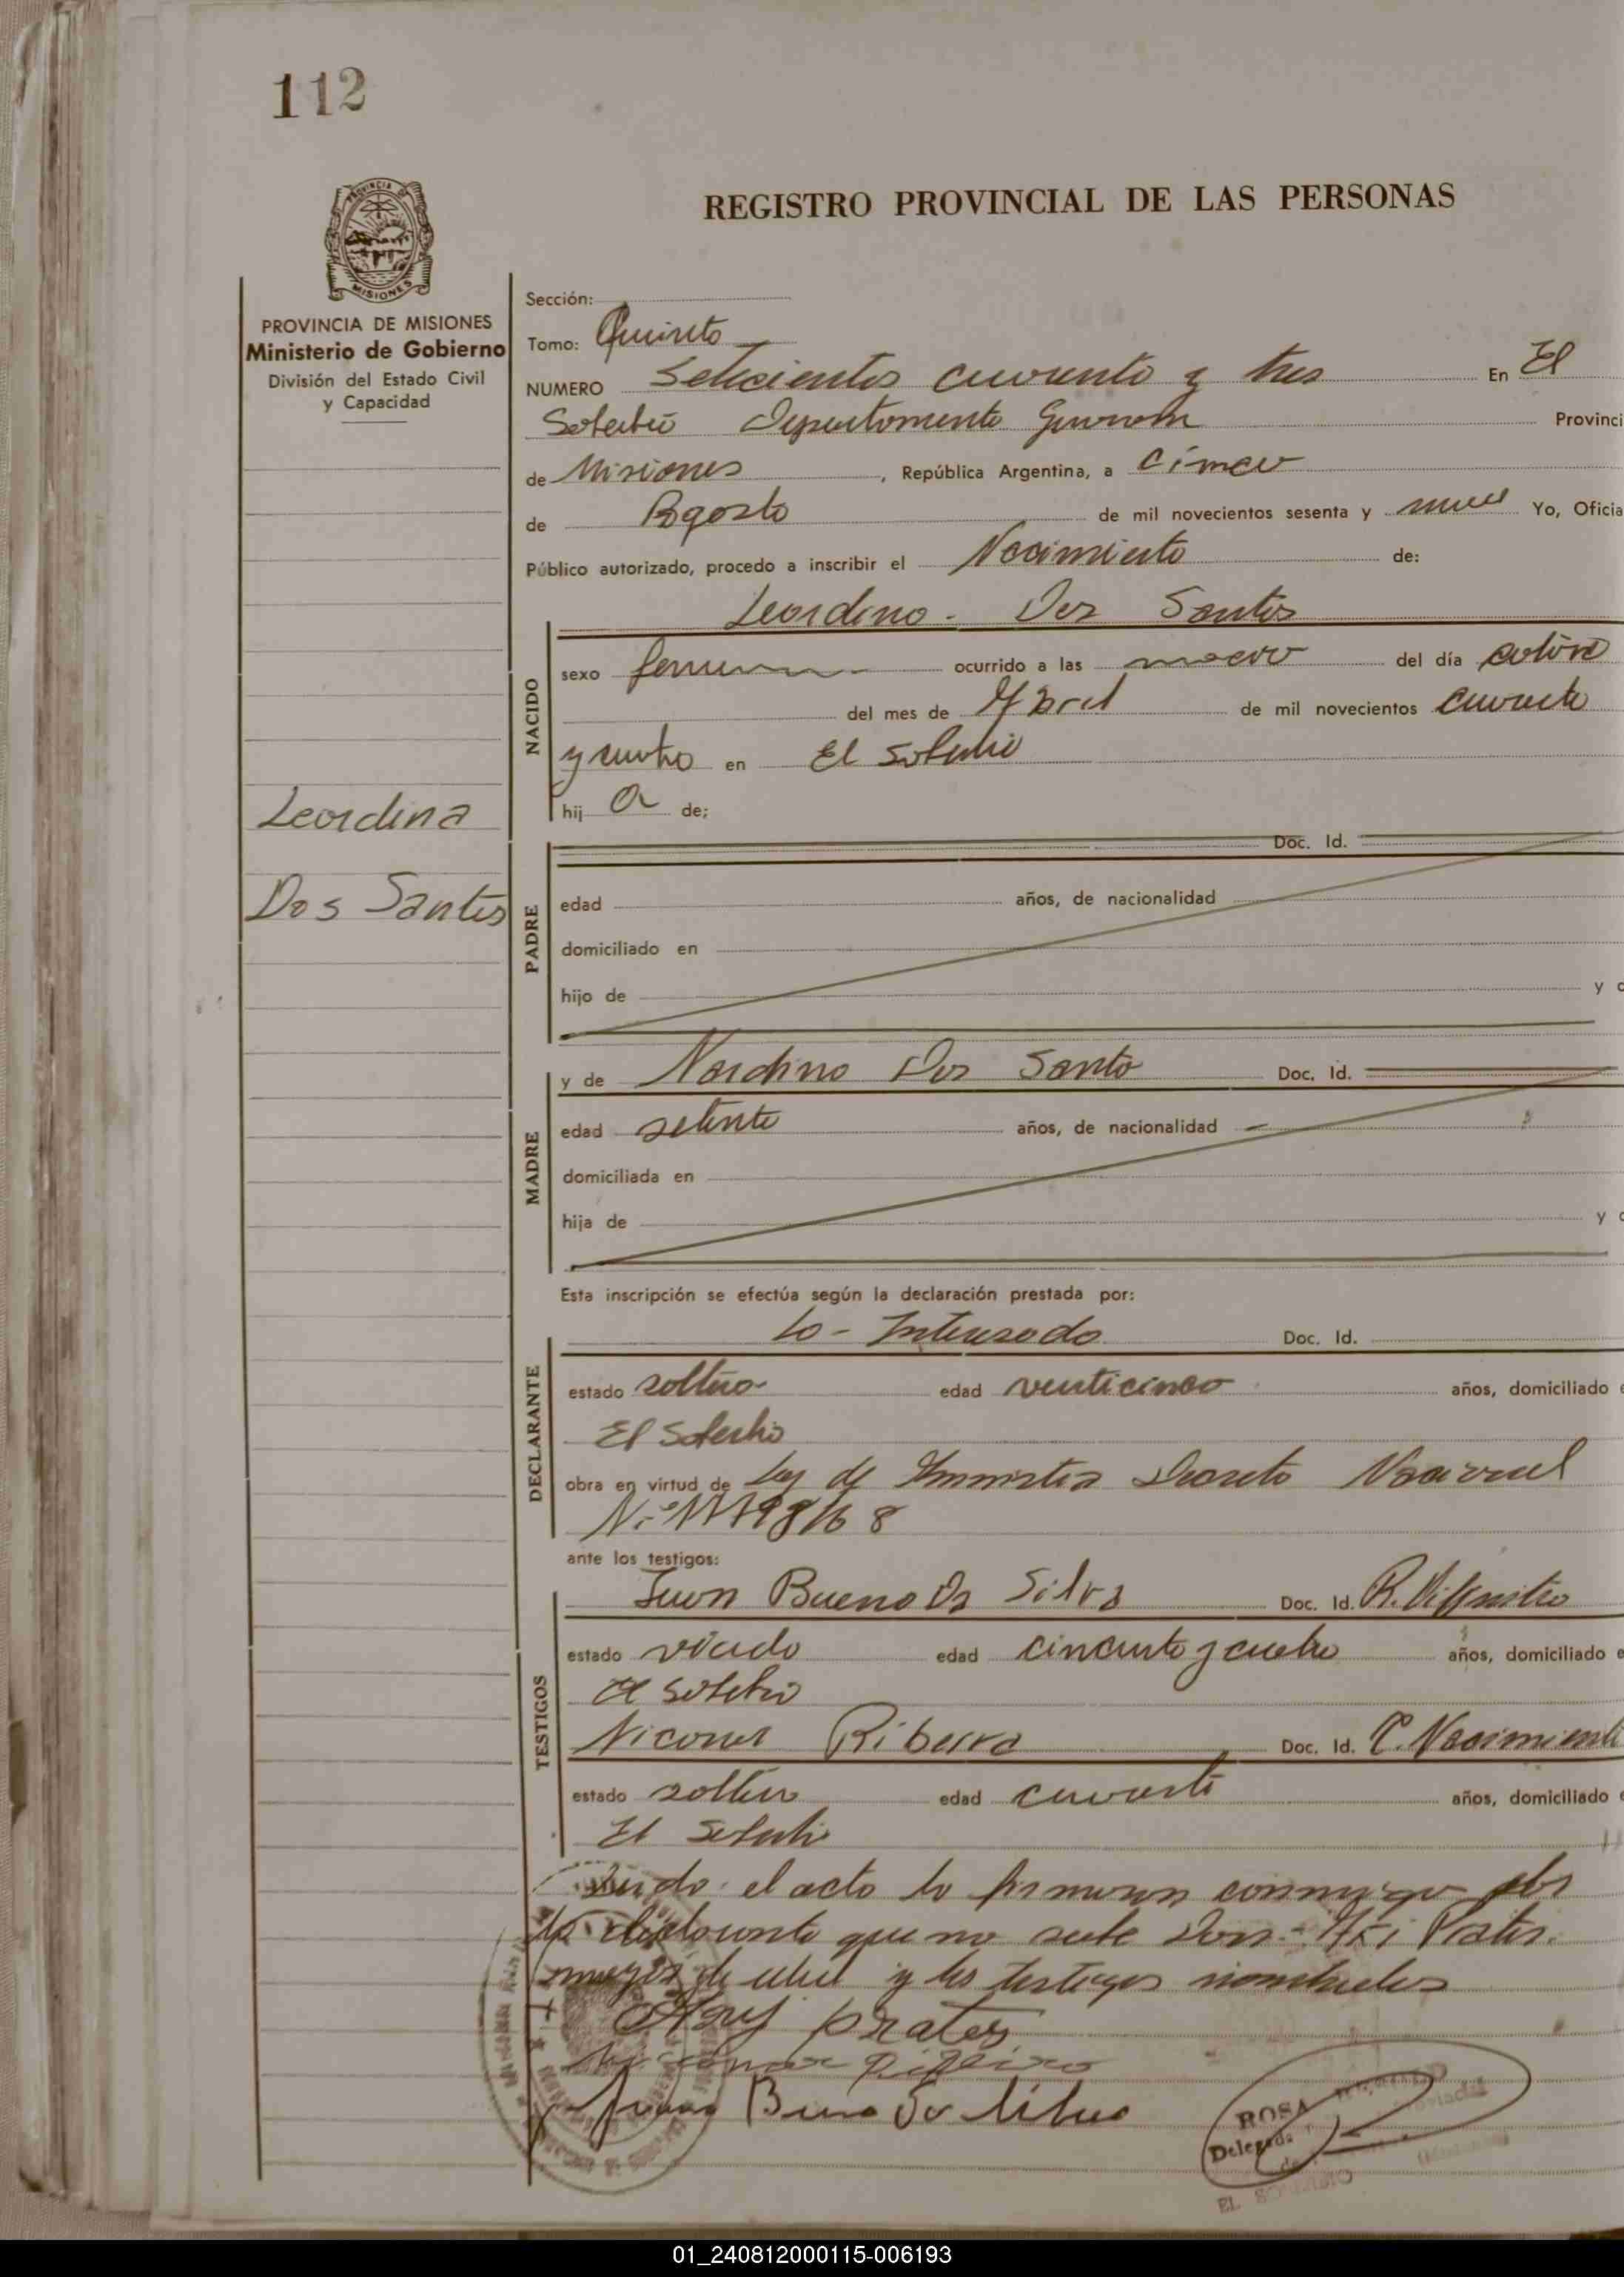 112
PROVINCIA DE MISIONES
Ministerio de Gobierno
División del Estado Civil
y Capacidad
REGISTRO PROVINCIAL DE LAS PERSONAS
Sección:
Tomo: Quinto
NUMERO Setecientos cuarenta y tres En El
Soberbio Departamento Guarani Provinci
de Misiones, República Argentina, a Cinco
de Agosto de mil novecientos sesenta y nueve Yo, Oficia
Público autorizado, procedo a inscribir el Nacimiento de:
Leordina - Dos Santos
NACIDO
sexo femenino ocurrido a las nueve del día catorce
del mes de Abril de mil novecientos cuarenta
y cuatro en El Soberbio
hij a de;
Leordina
Dos Santos
PADRE
Doc. Id.
edad años, de nacionalidad
domiciliado en
hijo de y
MADRE
y de Dos Santo Doc. Id.
edad setenta años, de nacionalidad
domiciliada en
hija de y
Esta inscripción se efectúa según la declaración prestada por:
DECLARANTE
La - Interesada Doc. Id.
estado soltera edad venticinco años, domiciliado
El Soberbio
obra en virtud de Ley de Amnistia Decreto Nacional
ante los testigos:
TESTIGOS
Juan Bueno Da Silva Doc. Id.
estado viudo edad cincuenta y cuatro años, domiciliado
El Soberbio
Nicanor Ribeiro Doc. Id. P. Nacimiento
estado soltero edad cuarenta años, domiciliado
El Soberbio
el acto lo firmaron conmigo por
la declarante que no sabe Don - Prates
y los testigos nombrados
Prates
Juan Bueno Da Silva
ROSA
Delegada
EL SOBERBIO
01_240812000115-006193